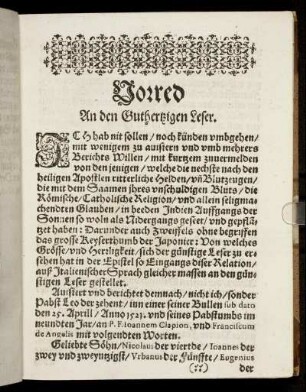 Vorred
An den Guthertzigen Leser.
ICH hab nit sollen / noch künden vmbgehen /
mit wenigem zu äussern vnd vmb mehrers
Berichts Willen / mit kurtzem zuuermelden
von den jenigen / welche die nechste nach den
heiligen Apostlen ritterliche Helden / vñ Blutzeugen /
die mit dem Saamen jhres vnschuldigen Bluts / die
Römische / Catholische Religion / vnd allein seligma-
chendten Glauben / in beeden Jndien Auffgangs der
Sonnen so wols als Nidergangs gesetzt / vnd gepflä-
tzt haben: Darunder auch zweiffels ohne begriffen
das grosse Keyserthumb der Japonier: Von welches
Grösse / vnd Herrligkeit / sich der günstige Leser zu er-
sehen hat in der Epistel so Eingangs diser Relation /
auß Jtalienischer Sprach gleicher massen an den gün-
stigen Leser gestellet.
Aussert vnd berichtet demnach / nicht ich / sonder
Pabst Leo der zehent / inn einer seiner Bullen sub dato
den 25. Aprill / Anno 1521. vnd seines Pabstumbs im
neundten Jar / an P. F. Ioannem Clapion, vnd Franciscum
de Angelis mit volgendten Worten.
Geliebte Söhn / Nicolaus der vierdte / Ioannes der
zwey vnd zweyntzigst / Vrbanus der Fünffte / Eugenius
der